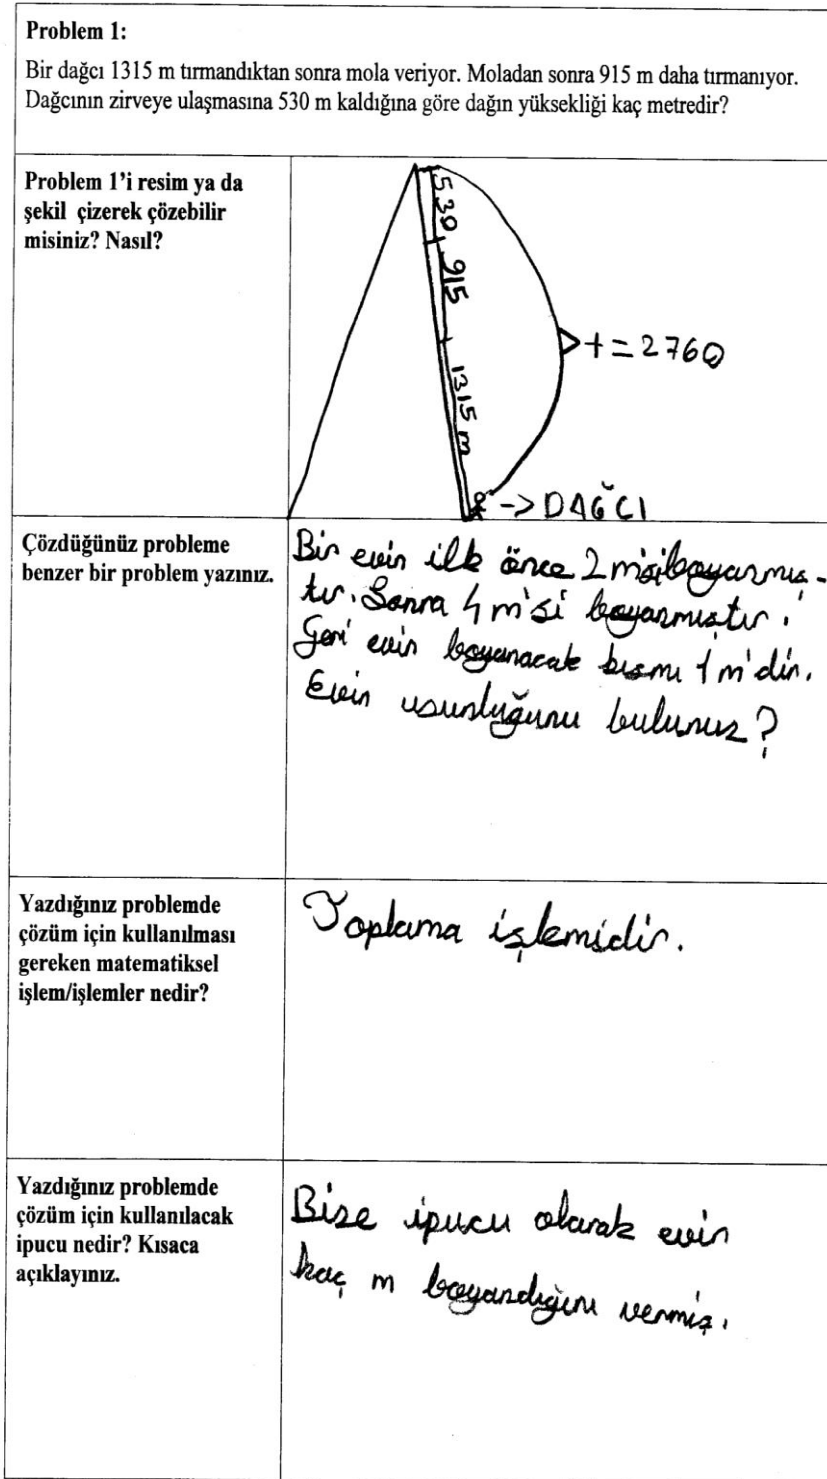 Problem 1:
Bir dağcı 1315 m tırmandıktan sonra mola veriyor. Moladan sonra 915 m daha tırmanıyor.
Dağcının zirveye ulaşmasına 530 m kaldığına göre dağın yüksekliği kaç metredir?
Problem 1'i resim ya da
şekil çizerek çözebilir
misiniz? Nasıl?
530
915
1315 m
+=2760
-> DAĞCI
Çözdüğünüz probleme
benzer bir problem yazınız.
Bir evin ilk önce 2 m'si boyanmış-
tır. Sonra 4 m'si boyanmıştır.
Geri evin boyanacak kısmı 1 m'dir.
Evin uzunluğunu bulunuz?
Yazdığınız problemde
çözüm için kullanılması
gereken matematiksel
işlem/işlemler nedir?
Toplama işlemidir.
Yazdığınız problemde
çözüm için kullanılacak
ipucu nedir? Kısaca
açıklayınız.
Bize ipucu olarak evin
kaç m boyandığını vermiş.